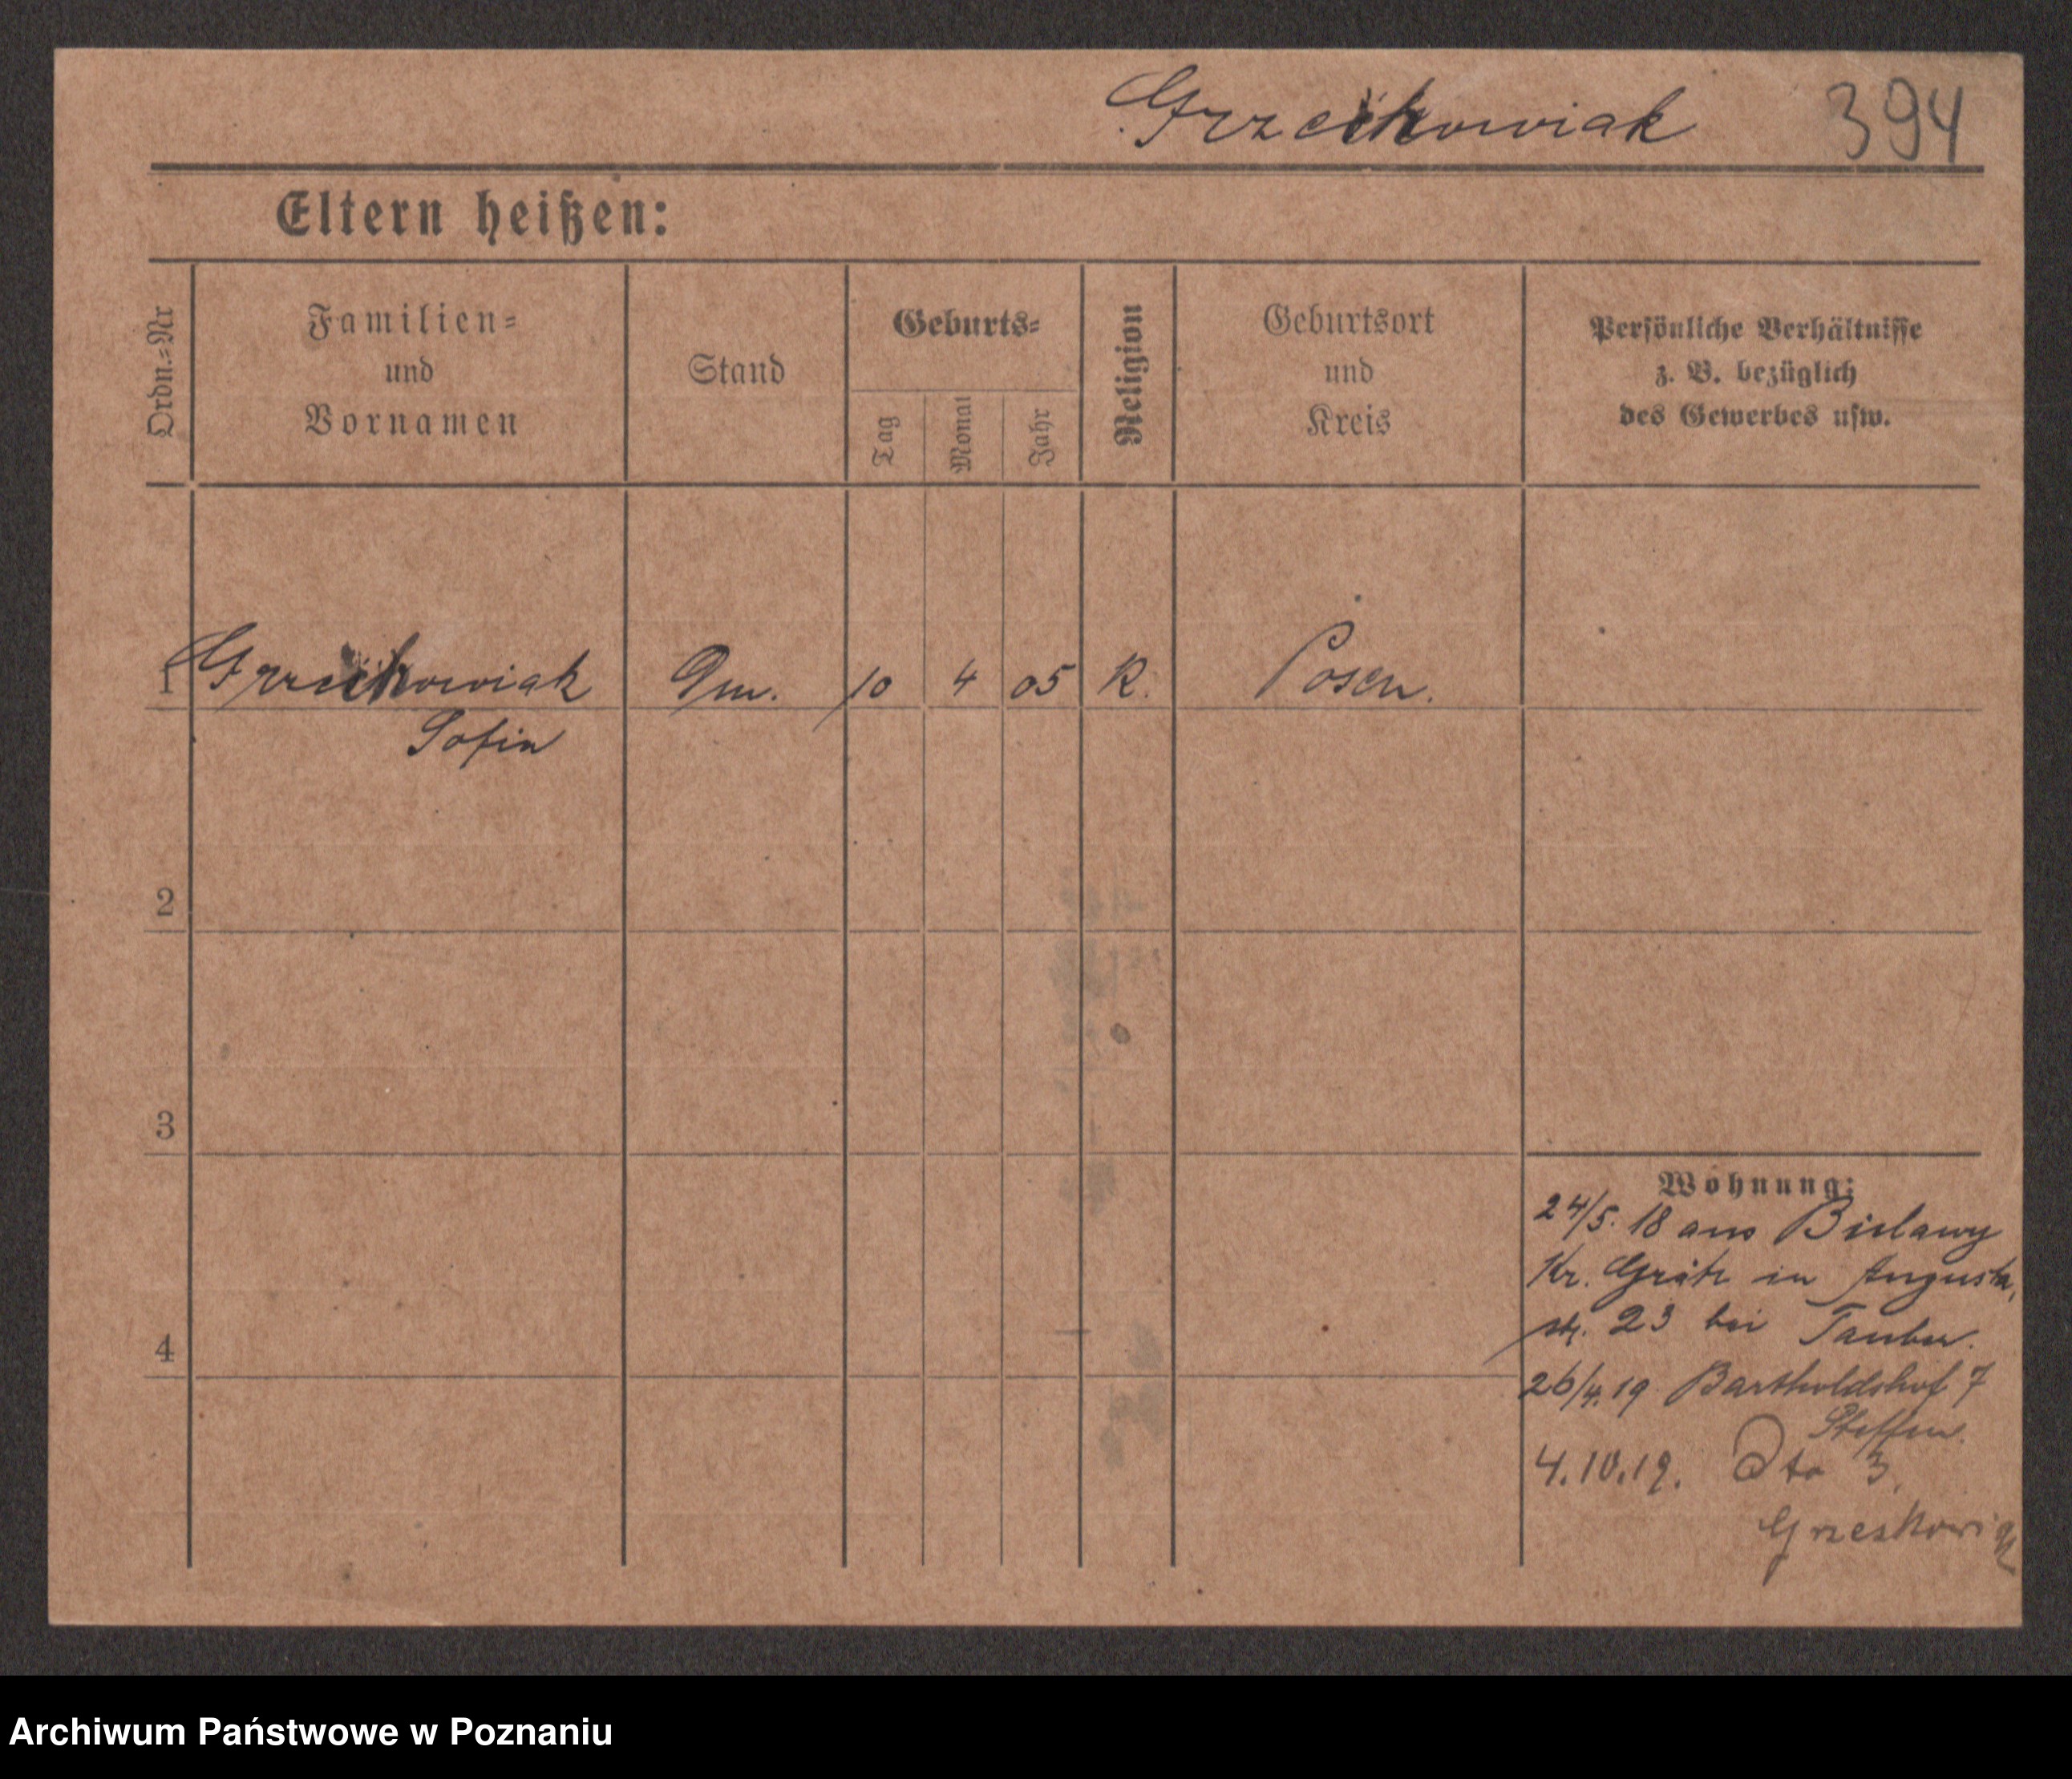 Grzeskowiak 394
Eltern heißen:
Ordn.=Nr
Familien=
und
Vornamen
Stand
Geburts=
Tag
Monat
Jahr
Religion
Geburtsort
und
Kreis
Persönliche Verhältnisse
z. B. bezüglich
des Gewerbes usw.
1 Grzeskowiak 10 4 05 K. Posen.
Sofia
2
3
4
Wohnung:
24/5. 18 aus Bielawy
Kr. Grätz in Augusta
str. 23 bei Tauber.
26/4.19 Bartholdshof 7
Steffen.
4.10.19. Dto 3.
Grzeskowiak
Archiwum Państwowe w Poznaniu